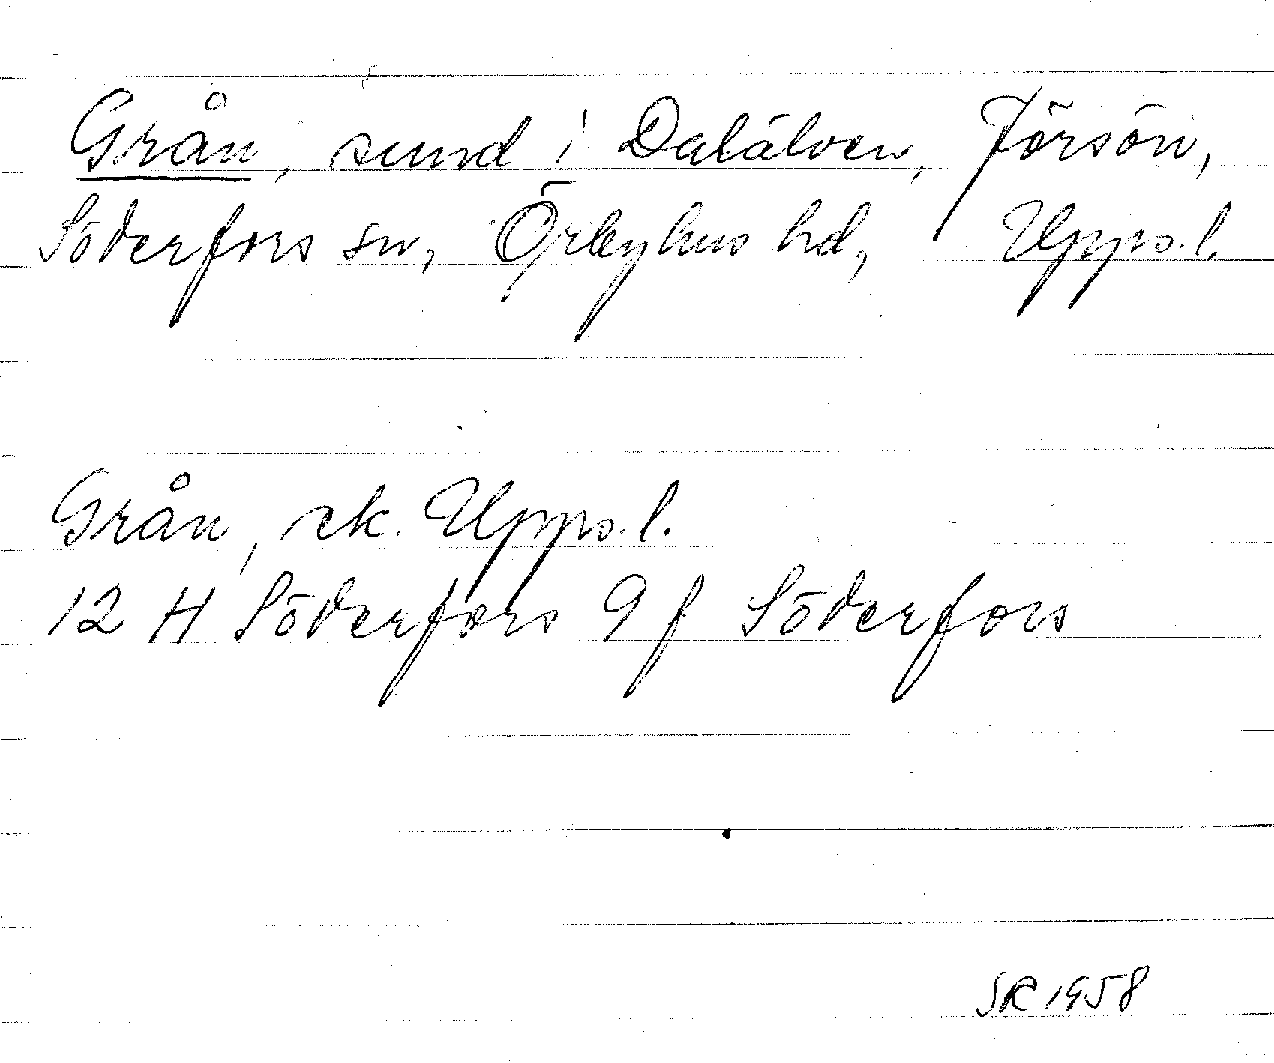 Grån, sund i Dalälven, Jörsön,
Söderfors sn, Örbyhus hd, Upps.l.
Grån, ek. Upps.l.
12 H Söderfors 9f Söderfors
SR 1958